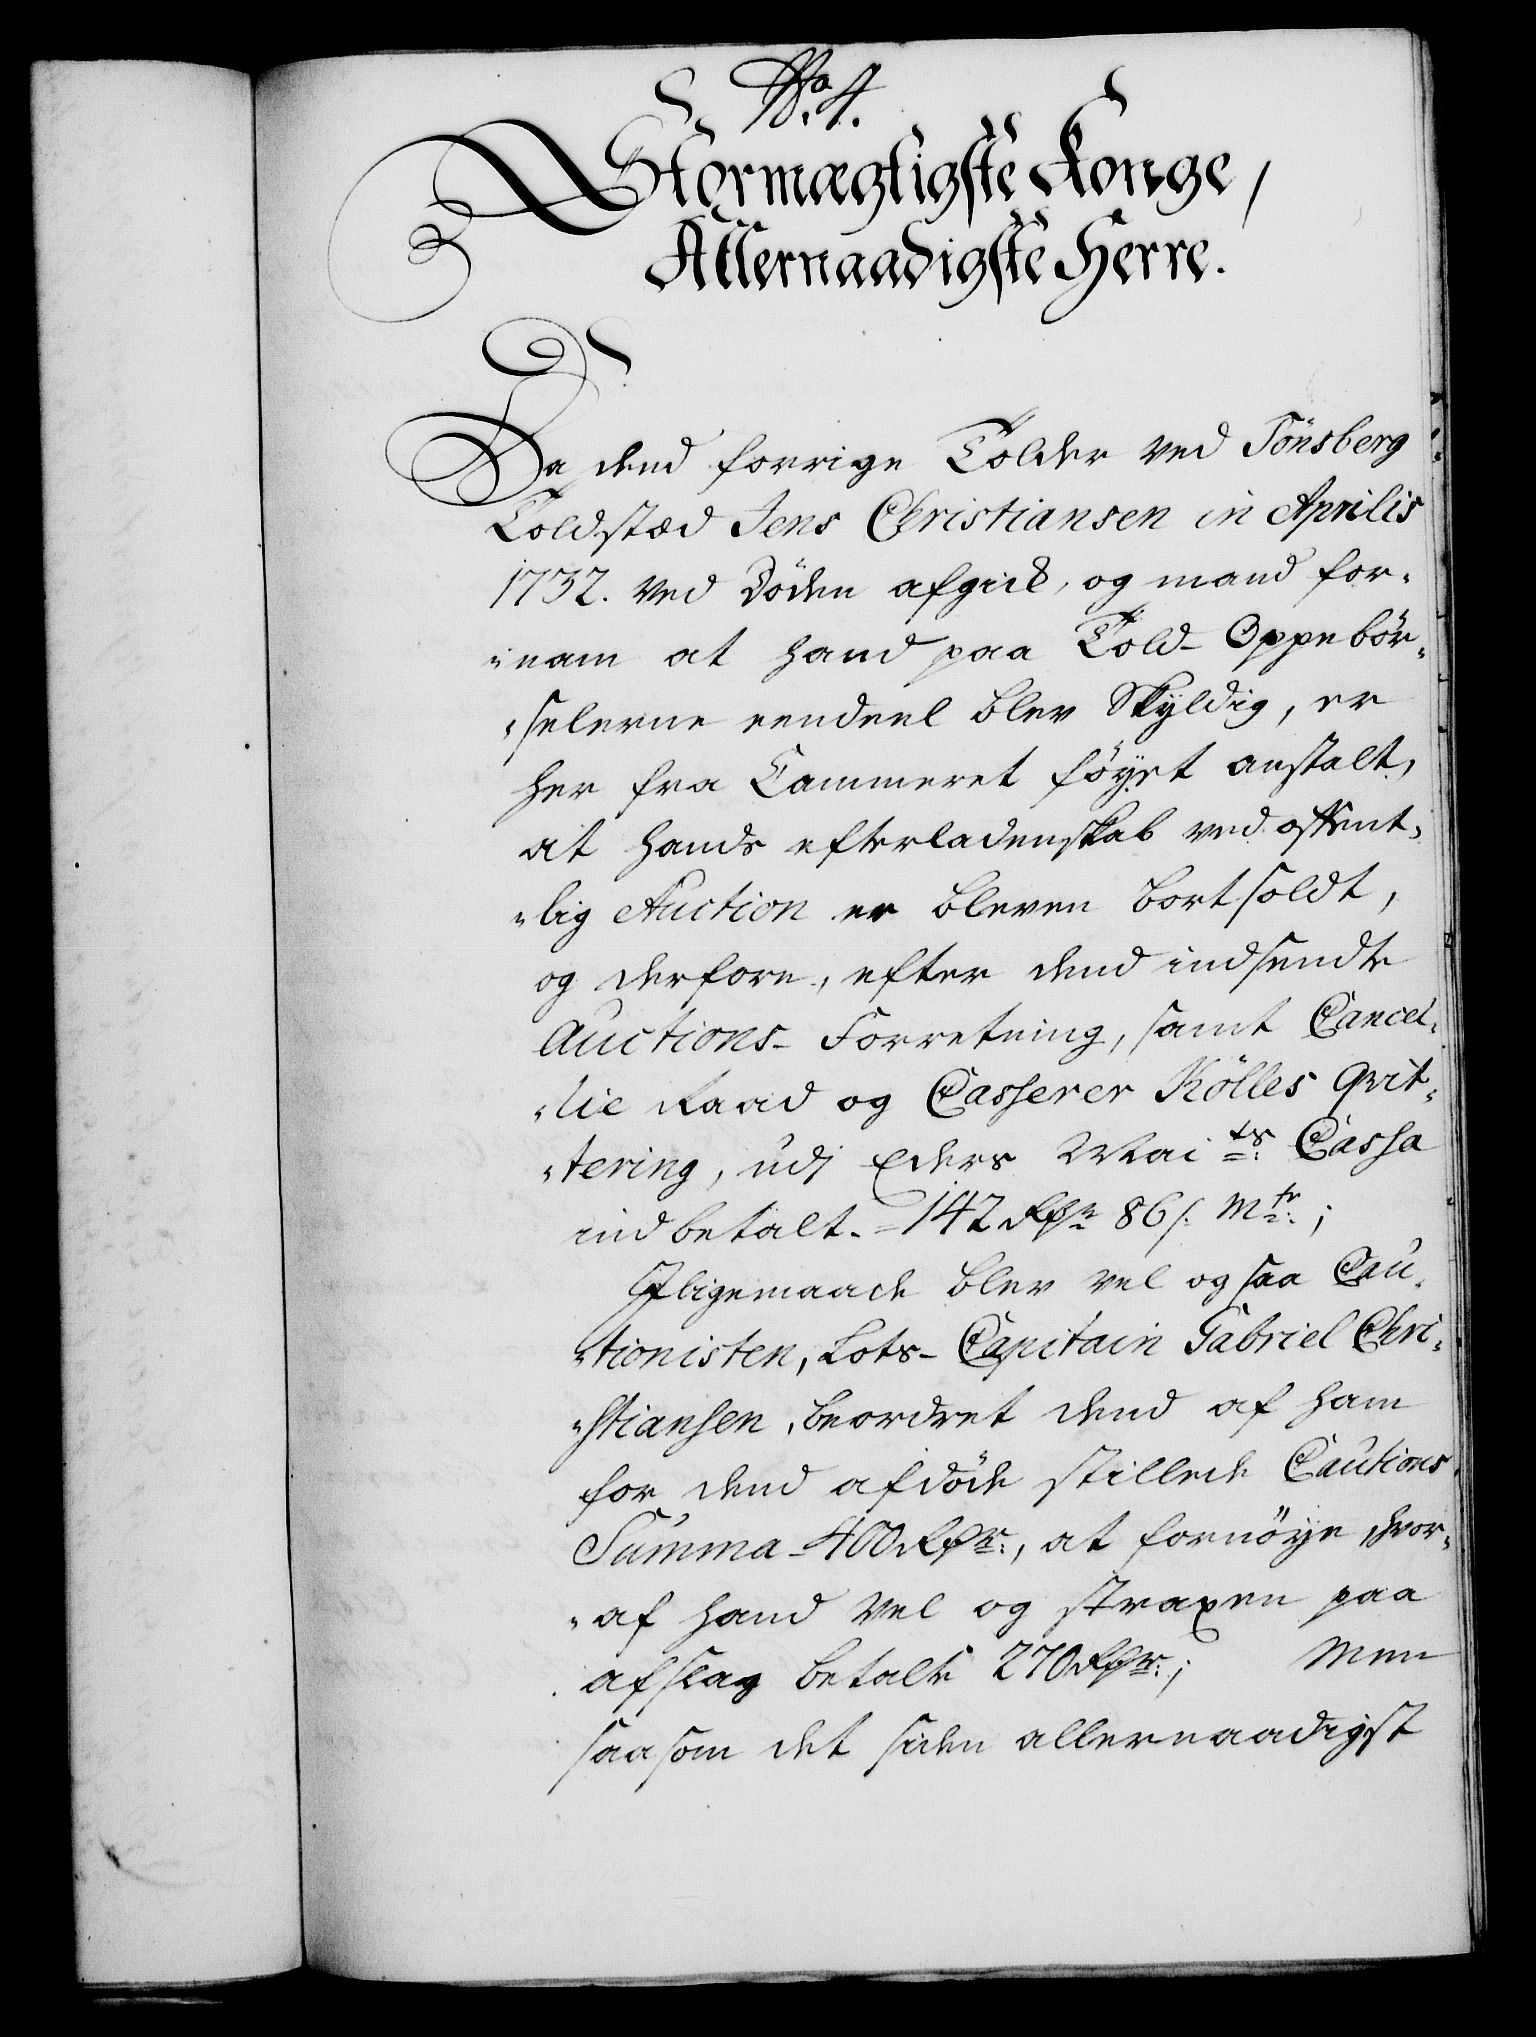 No. 4.
Stormægtigste Konge,
Allernaadigste Herre.
Da dend forrige Tolder ved Tönsberg
Toldstæd Jens Christiansen in Aprilis
1732. ved Döden afgick, og mand for-
nam at hand paa Told-Oppebör-
selerne eendeel blev Skyldig, er
her fra Cammeret föyet anstalt,
at hands efterladenskab ved offent-
lig Auction er bleven bortsoldt,
og derfore, efter dend indsendte
Auctions-Forretning, samt Cancel-
lie Raad og Casserer Kölles Qvit-
tering, udj Eders Maits: Cassa
indbetalt. - 142 Rdr 86 s. Mtr:;
Jligemaade blev vel og saa Cau-
tionisten, Lots-Capitain Gabriel Chri-
stiansen, beordret dend af ham
for dend afdöde stillede Cautions
Summa - 400 Rdr:, at fornöye, hvor-
af hand vel og straxen paa
afslag betalte 270 Rdr:; Men
saasom det siden allernaadigst